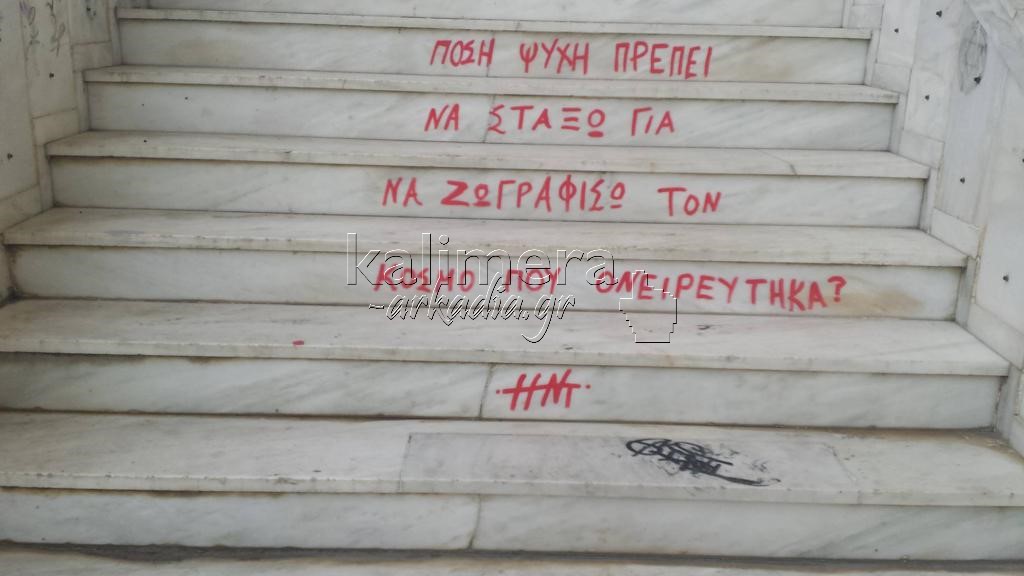 ΠΟΣΗ ΨΥΧΗ ΠΡΕΠΕΙ
ΝΑ ΣΤΑΞΩ ΓΙΑ
ΝΑ ΖΩΓΡΑΦΙΣΩ ΤΟΝ
ΚΟΣΜΟ ΠΟΥ ΟΝΕΙΡΕΥΤΗΚΑ?
kalimera
-arkadia.gr